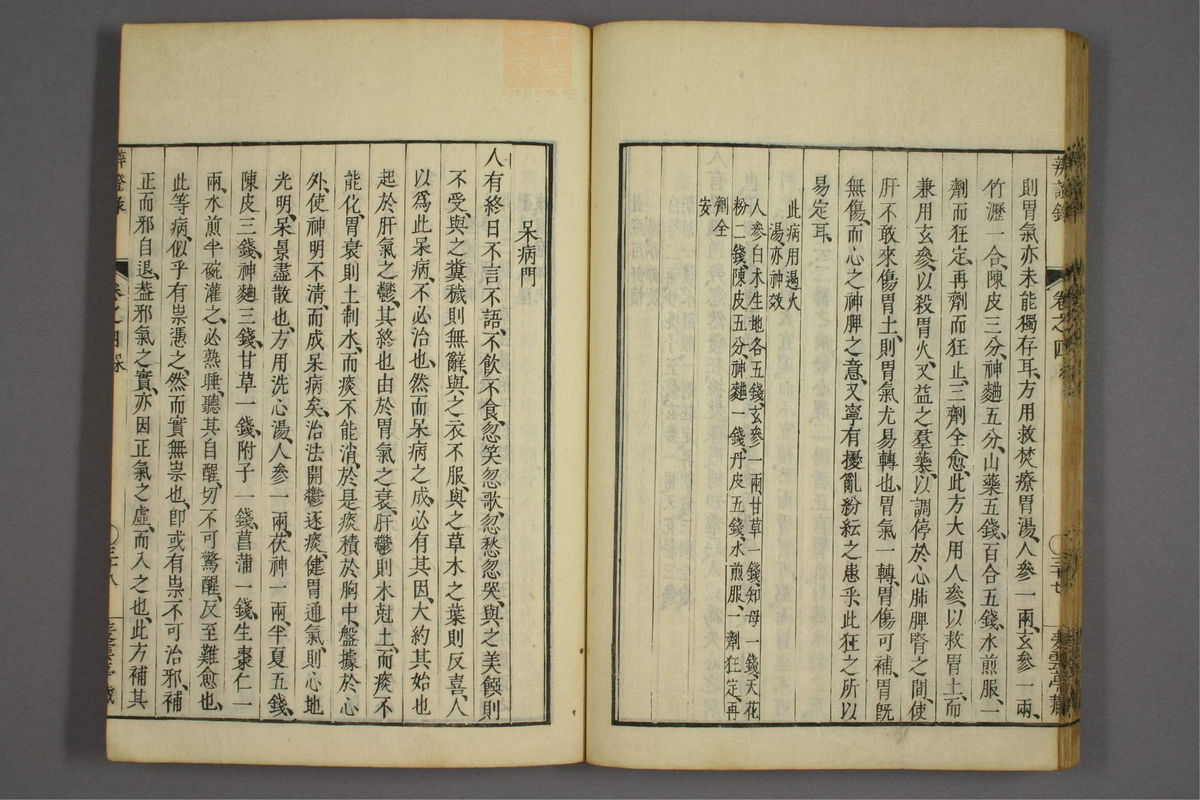 則胃氣亦未能獨存耳、方用救焚療胃湯、人參一兩、玄參一兩、
竹瀝一合、陳皮三分、神麯五分、山藥五錢、百合五錢、水煎服、一
劑而狂定、再劑而狂止、三劑全愈、此方大用人參、以救胃土、而
兼用玄參、以殺胃火、又益之羣藥、以調停於心肺脾腎之間、使
肝不敢來傷胃土、則胃氣尤易轉也、胃氣一轉、胃傷可補、胃旣
無傷、而心之神脾之意、又寧有擾亂紛紜之患乎、此狂之所以
易定耳、
此病用遏火
湯亦神效
人參白朮生地各五錢、玄參一兩、甘草一錢、知母一錢、天花
粉二錢、陳皮五分、神麯一錢、丹皮五錢、水煎服、一劑狂定、再
劑全
安
辨證錄 卷之四
呆病門
人有終日不言不語、不飲不食、忽笑忽歌、忽愁忽哭、與之美饌則
不受、與之糞穢則無辭、與之衣不服、與之草木之葉則反喜、人
以爲此呆病、不必治也、然而呆病之成、必有其因、大約其始也
起於肝氣之鬱、其終也由於胃氣之衰、肝鬱則木尅土、而痰不
能化、胃衰則土制水、而痰不能消、於是痰積於胸中、盤據於心
外、使神明不清、而成呆病矣、治法開鬱逐痰、健胃通氣、則心地
光明、呆景盡散也、方用洗心湯、人參一兩、茯神一兩、半夏五錢、
陳皮三錢、神麯三錢、甘草一錢、附子一錢、菖蒲一錢、生棗仁一
兩、水煎半碗灌之、必熟睡、聽其自醒、切不可驚醒、反至難愈也、
此等病、似乎有祟憑之、然而實無祟也、卽或有祟、不可治邪、補
正而邪自退、蓋邪氣之實、亦因正氣之虛、而入之也、此方補其